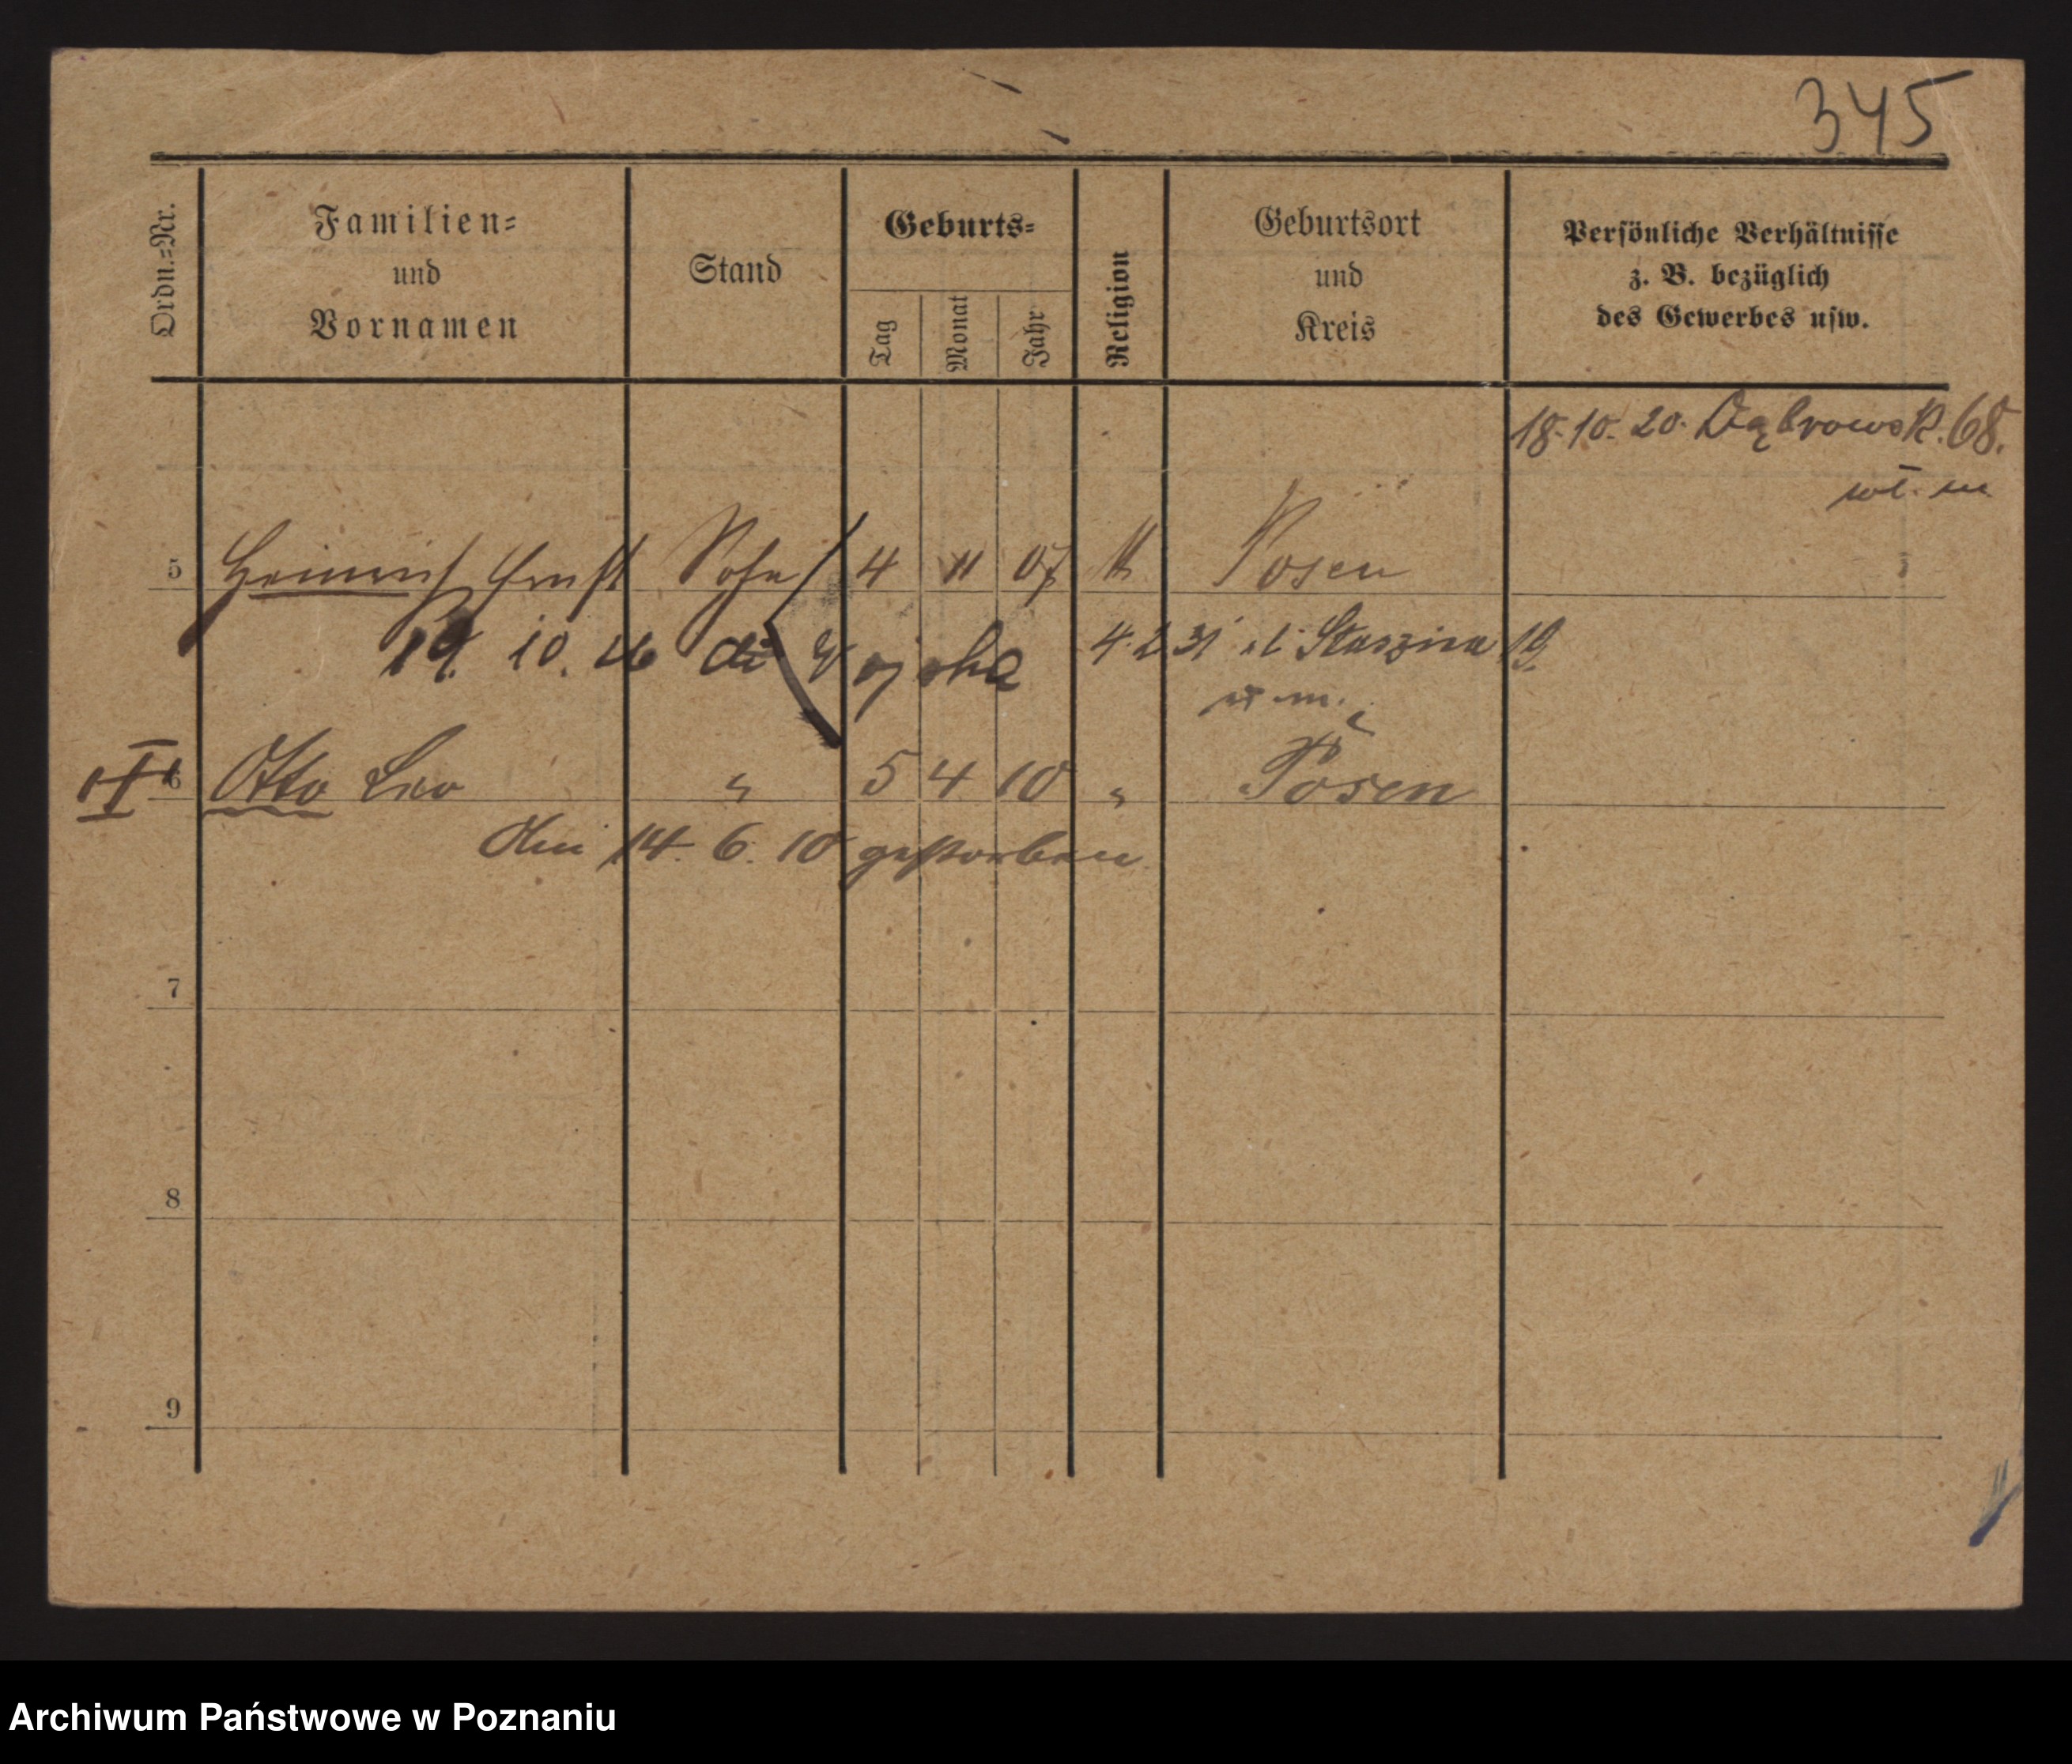 345
Ordn.=Nr.
Familien=
und
Vornamen
Stand
Geburts=
Tag
Monat
Jahr
Religion
Geburtsort
und
Kreis
Persönliche Verhältnisse
z. B. bezüglich
des Gewerbes usw.
18.10.20. Dąbrowsk. 68.
wł. m
5 Heinrich Ernst Sohn 4 11 07 Posen
19. 10. 26 do Wojska 4.2.31 Staszica 19.
w m.
6 Otto Leo " 5 4 10 " Posen
Am 14. 6. 10 gestorben.
7
8
9
Archiwum Państwowe w Poznaniu